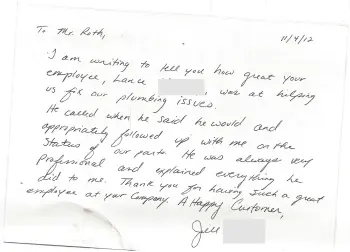 To Mr. Roth,
11/4/12
I am writing to tell you how great your
employee, Lance was at helping
us fix our plumbing issues.
He called when he said he would and
appropriately followed up with me on the
status of our parts. He was always very
Professional and explained everything he
did to me. Thank you for having such a great
employee at your Company. A Happy Customer,
Jill